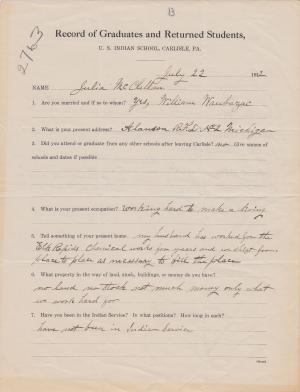 B
2763
Record of Graduates and Returned Students,
U. S. INDIAN SCHOOL, CARLISLE, PA.
July 22 1912
NAME Julia McClellan
1. Are you married and if so to whom? Yes, William Waubagac
2. What is your present address? Alanson R.F.D. No 2 Michigan
3. Did you attend or graduate from any other schools after leaving Carlisle? no Give names of
schools and dates if possible
4. What is your present occupation? working hard to make a living
5. Tell something of your present home. my husband has worked for the
Elk Rapids Chemical works for years and
place to place as necessary to the place
6. What property in the way of land, stock, buildings, or money do you have?
no land no stock not much money only what
we work hard for
7. Have you been in the Indian Service? In what positions? How long in each?
have not been in Indian Service